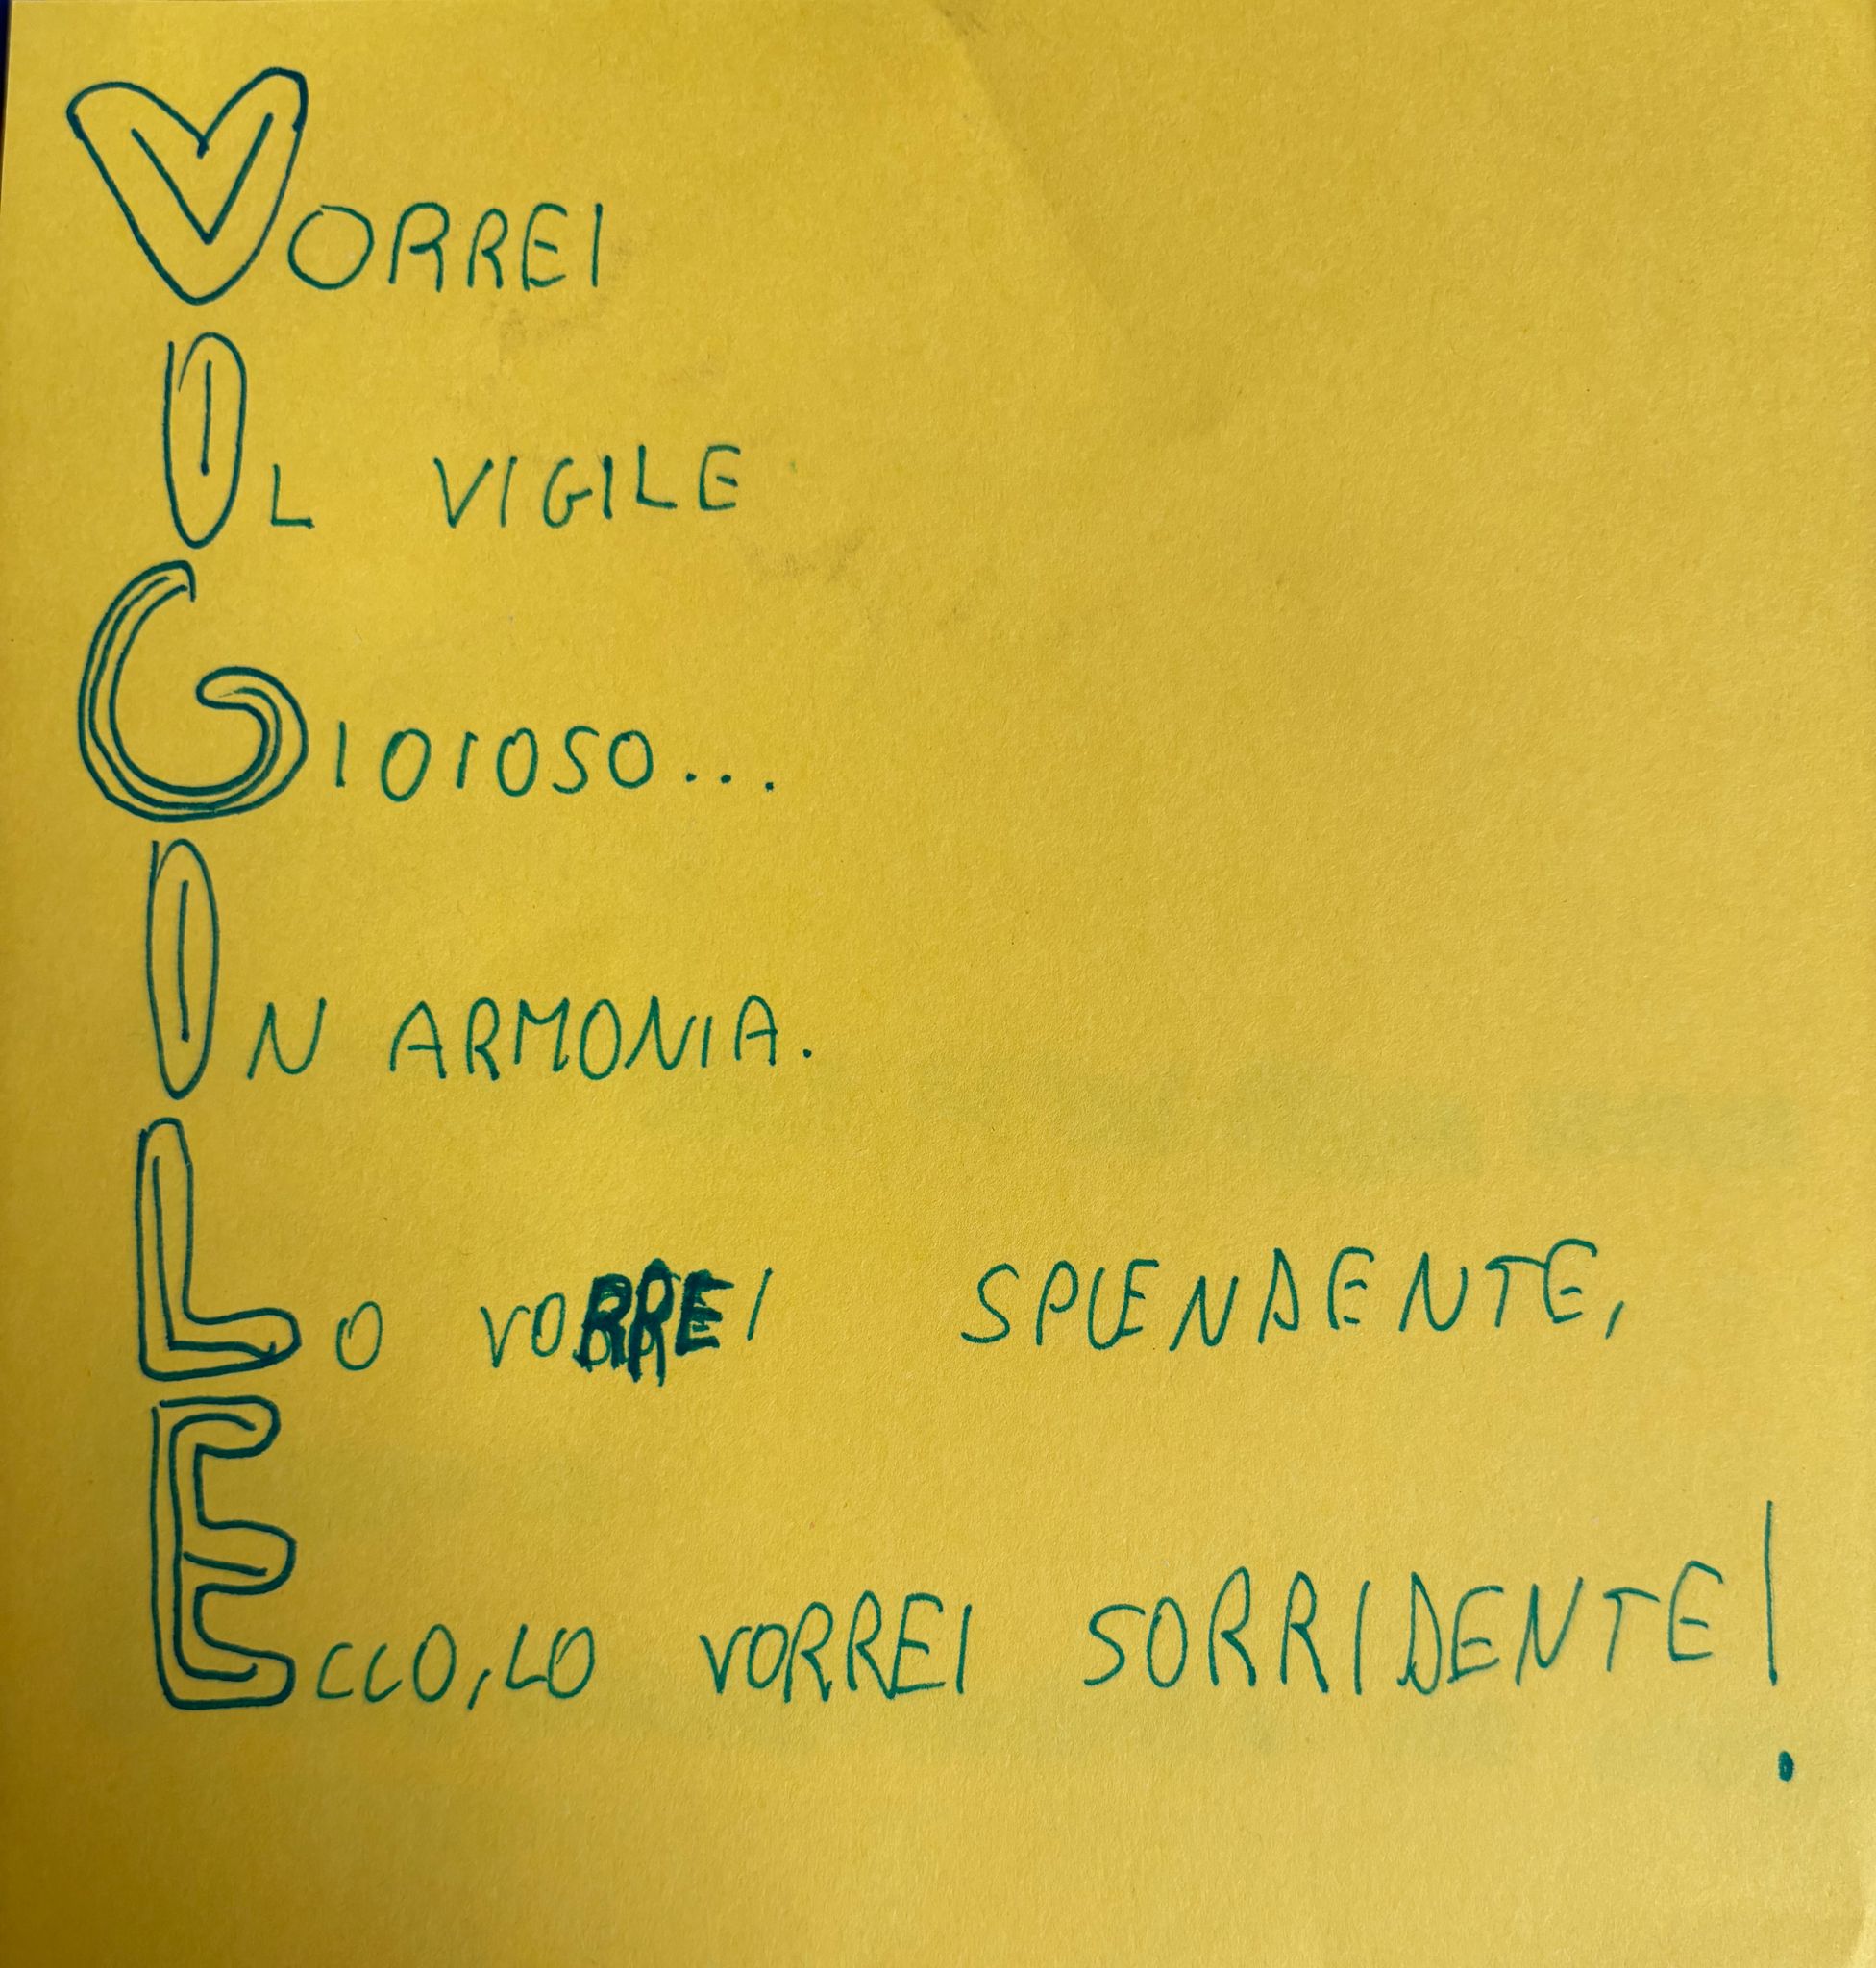 VORREI
IL VIGILE
GIOIOSO...
IN ARMONIA.
LO VORREI SPLENDENTE,
ECCO, LO VORREI SORRIDENTE!